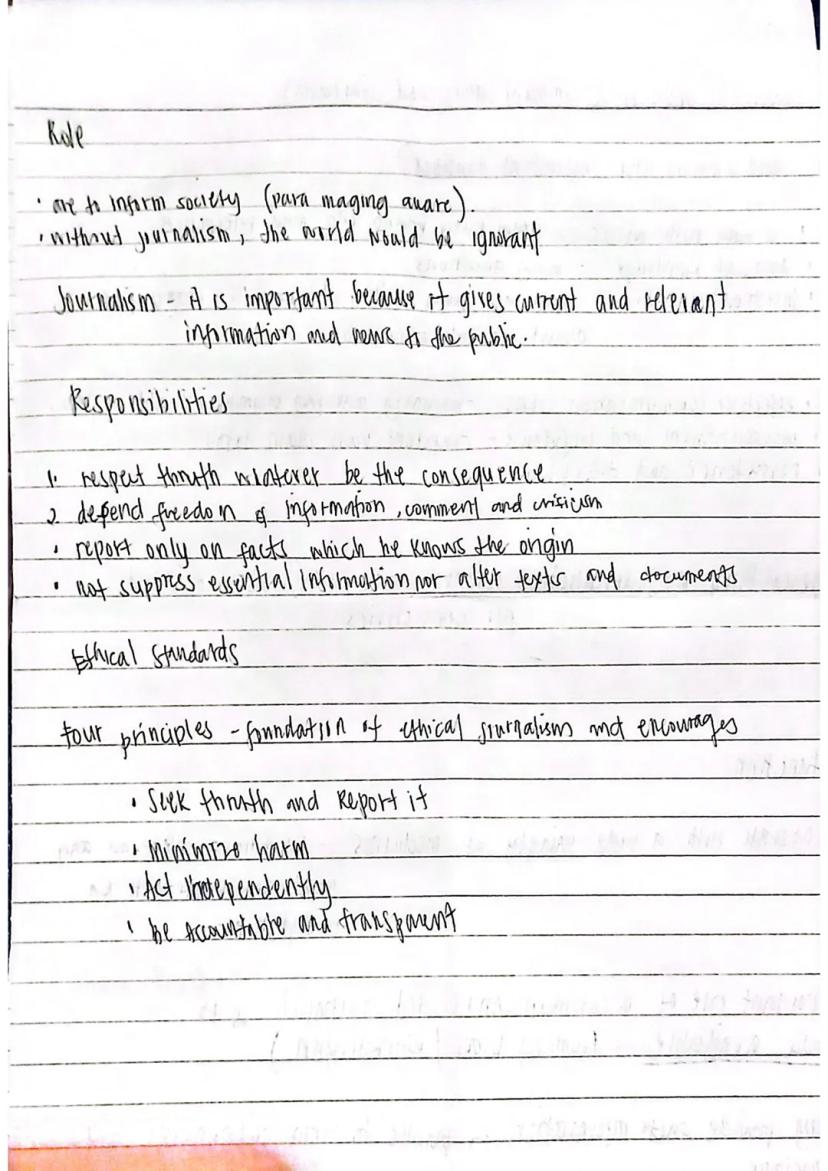 Role
• are to inform society (para maging aware).
• without journalism, the world would be ignorant
Journalism it is important because it gives current and relevant
information and news to the public.
Responsibilities
1. respect thruth whatever be the consequence
2. defend freedom of information, comment and criticism
• report only on facts which he knows the origin
• not suppress essential information nor alter texts and documents
Ethical Standards
four principles - foundation of ethical journalism and encourages
• Seek thruth and Report it
• Minimize harm
• Act Independently
• be Accountable and transparent